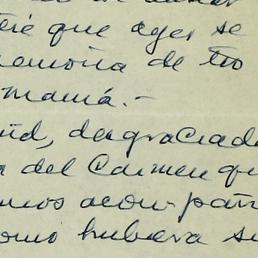 que ayer se
de tio
mamá.-
desgraciada
del Carmen qu
mos acom-pañ
omo hubiera su